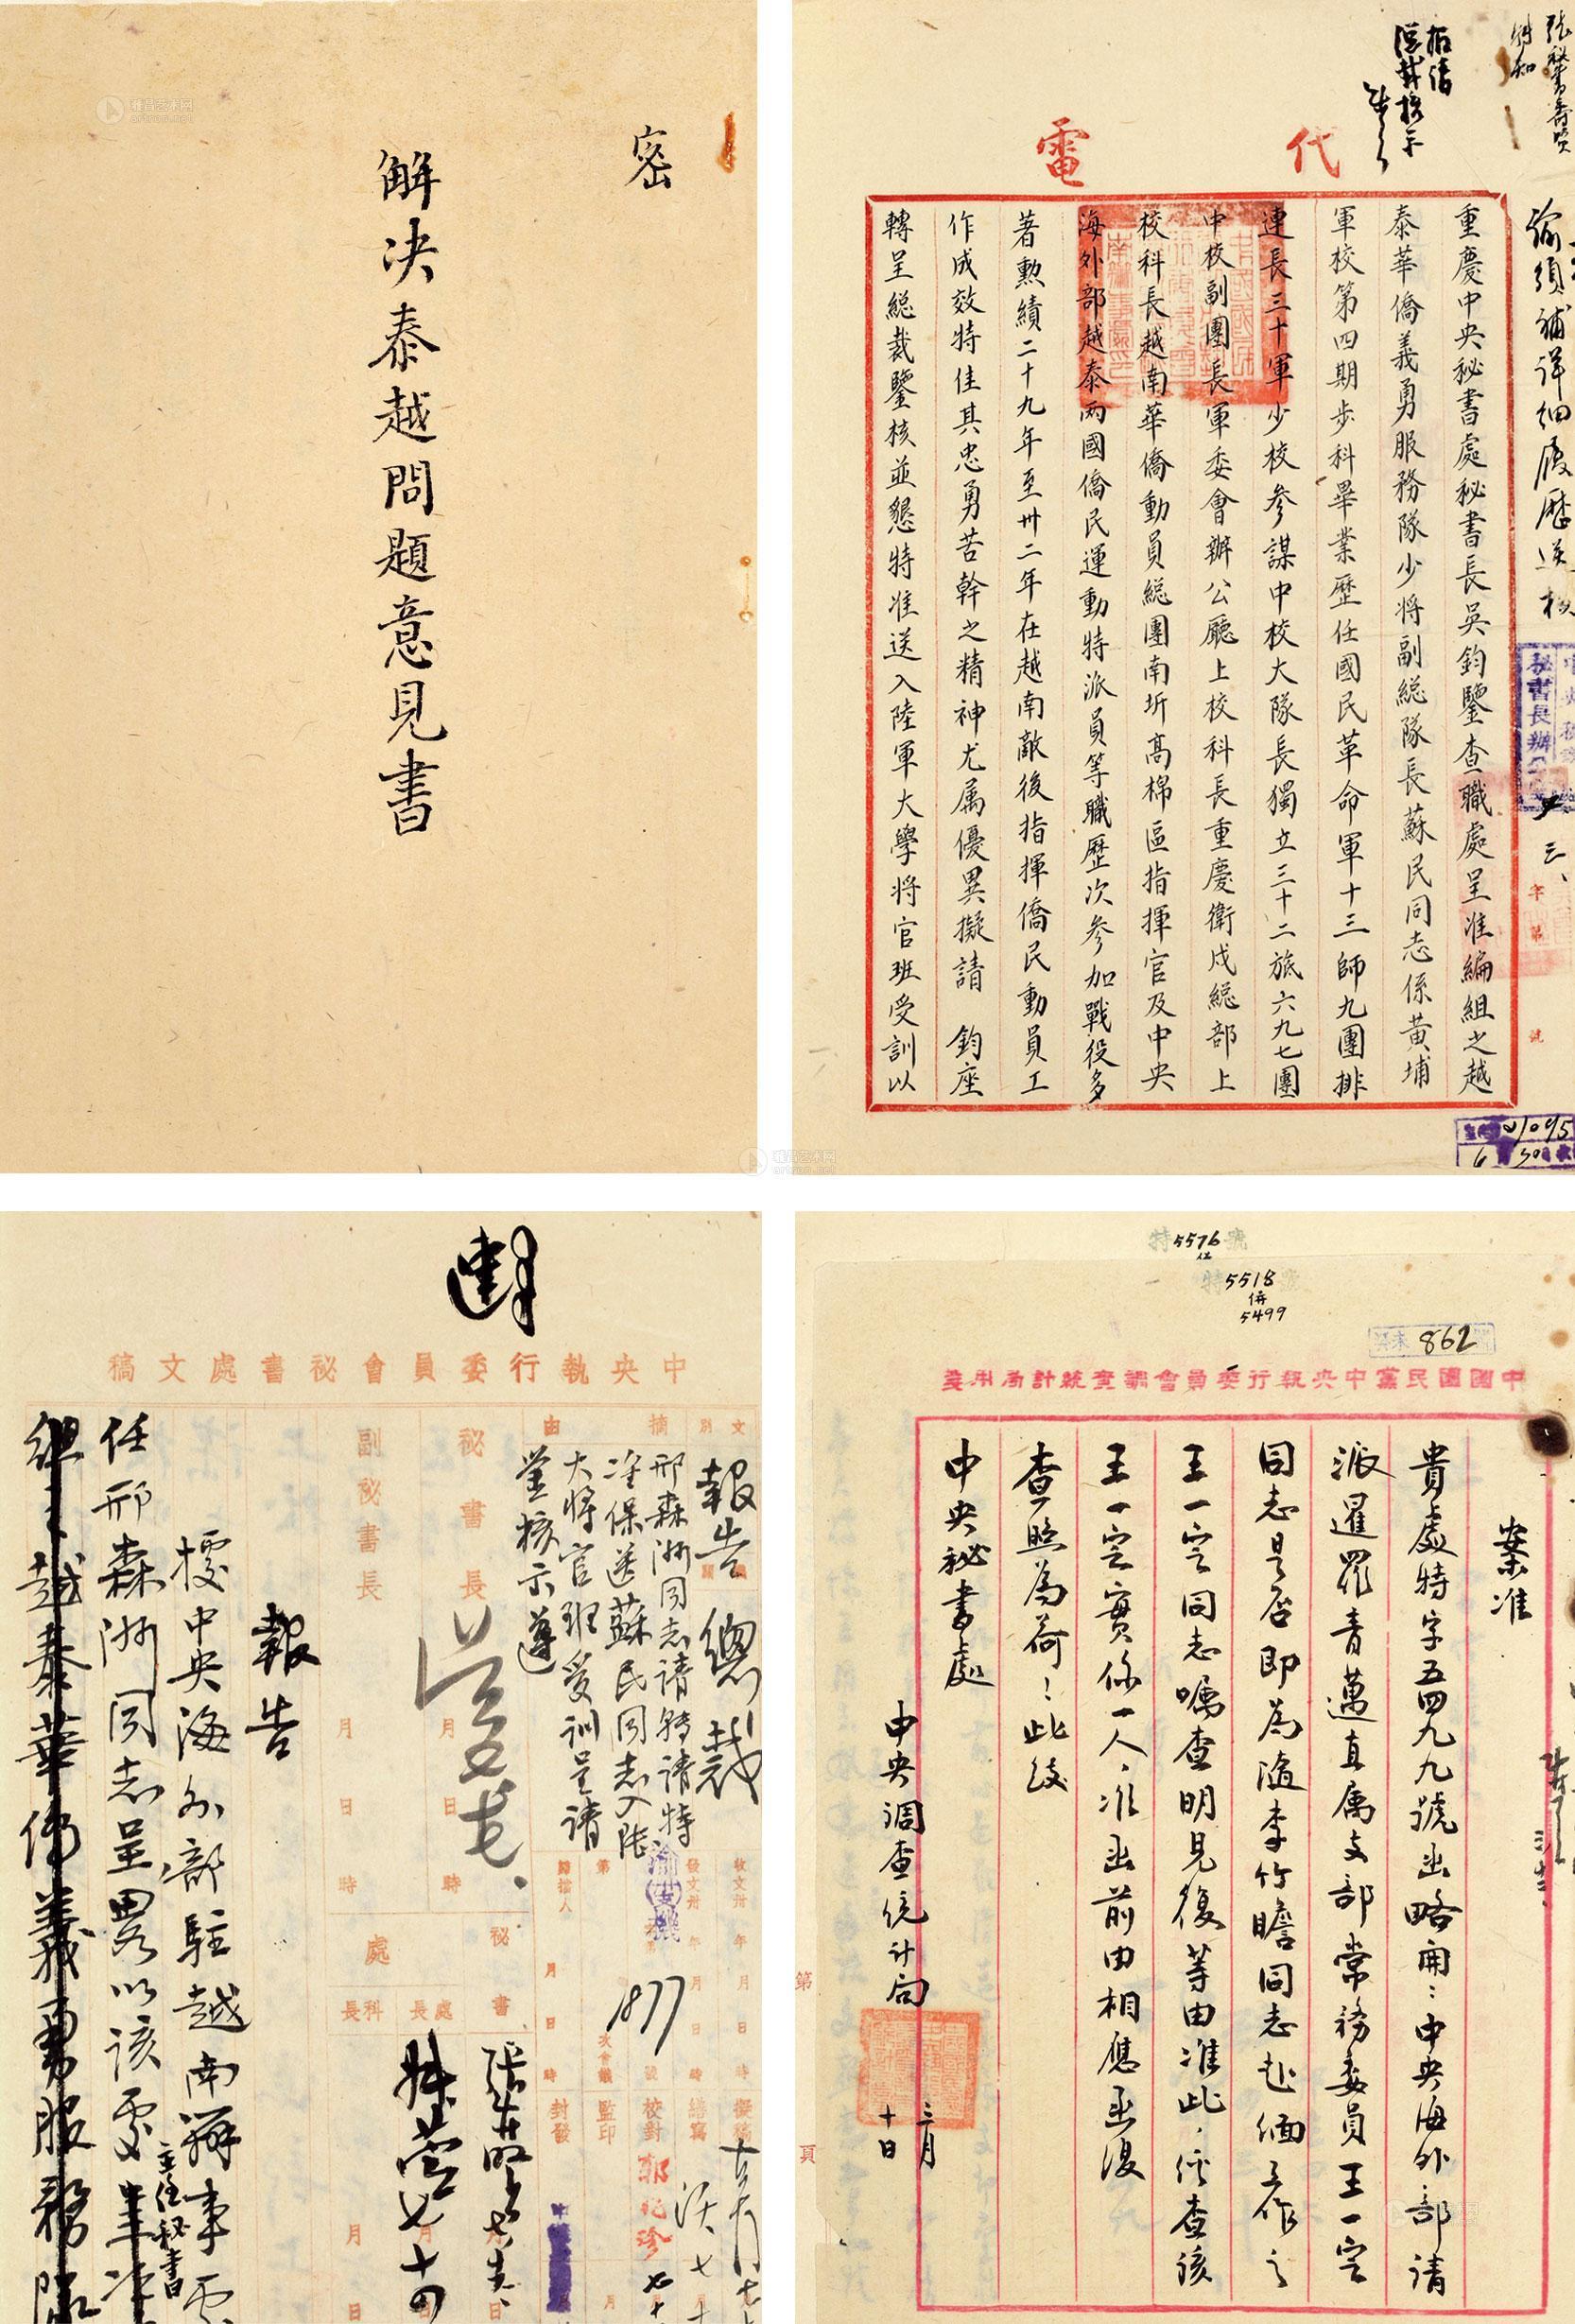 密
解决泰越問題意見書
代電
重慶中央秘書處秘書長吳鈞鑒查職處呈准編組之越
泰華僑義勇服務隊少将副総隊長蘇民同志係黃埔
軍校第四期步科畢業歷任國民革命軍十三師九團排
連長三十軍少校參謀中校大隊長獨立三十二旅六九七團
中校副團長軍委會辦公廳上校科長重慶衛戍総部上
校科長越南華僑動員総團南圻高棉區指揮官及中央
海外部越泰兩國僑民運動特派員等職歷次參加戰役多
著勲績二十九年至卅二年在越南敵後指揮僑民動員工
作成效特佳其忠勇苦幹之精神尤属優異擬請 鈞座
轉呈総裁鑒核並懇特准送入陸軍大學将官班受訓以
諭須補詳細履歷送核
字第 號
中央執行委員會秘書處文稿
文別
報告 總裁
摘由
邢森洲同志請轉請特
准保送蘇民同志入陸
大将官班受訓呈請
鑒核示遵
秘書長
副秘書長
月 日 時
秘書
處長
科長
1877
校對
監印
封發
報告
據中央海外部駐越南辦事處
主任秘書
任邢森洲同志呈畧以該處
組之越泰華僑義勇服務隊
5576
5518
併
5499
862
中國國民黨中央執行委員會調查統計局用箋
案准
貴處特字五四九九號函略開：中央海外部請
派暹羅青邁直属支部常務委員王一定
同志是否即為隨李竹瞻同志赴緬工作之
王一定同志囑查明見復等由准此，經查該
王一定實係一人，准函前由相應函復
查照為荷！此致
中央秘書處
中央調查統計局
三月十日
第 頁